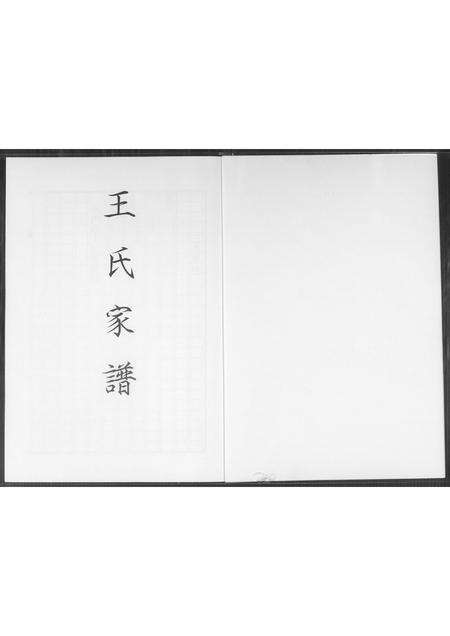 王氏家譜